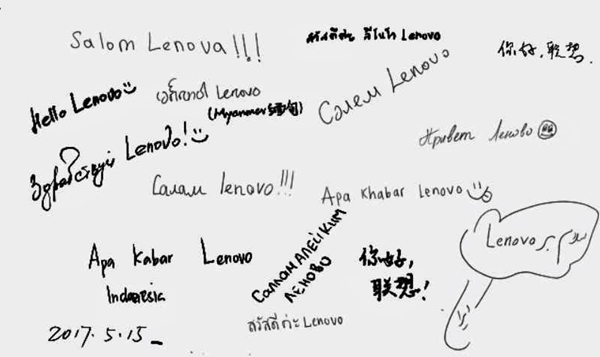 Salom Lenova!!!
สวัสดีค่ะ ลีโนโว Lenovo
你好,联想.
Hello Lenovo
Lenovo
(Myanmar 缅甸)
Сәлем Lenovo
Lenovo!
Привет Леново
Салам lenovo!!!
Apa Khabar Lenovo
Lenovo
Apa Kabar Lenovo
Indonesia
САЛЛАМ АЛЕЙКИМ
ЛЕНОВО
你好,
联想!
สวัสดีค่ะ Lenovo
2017.5.15